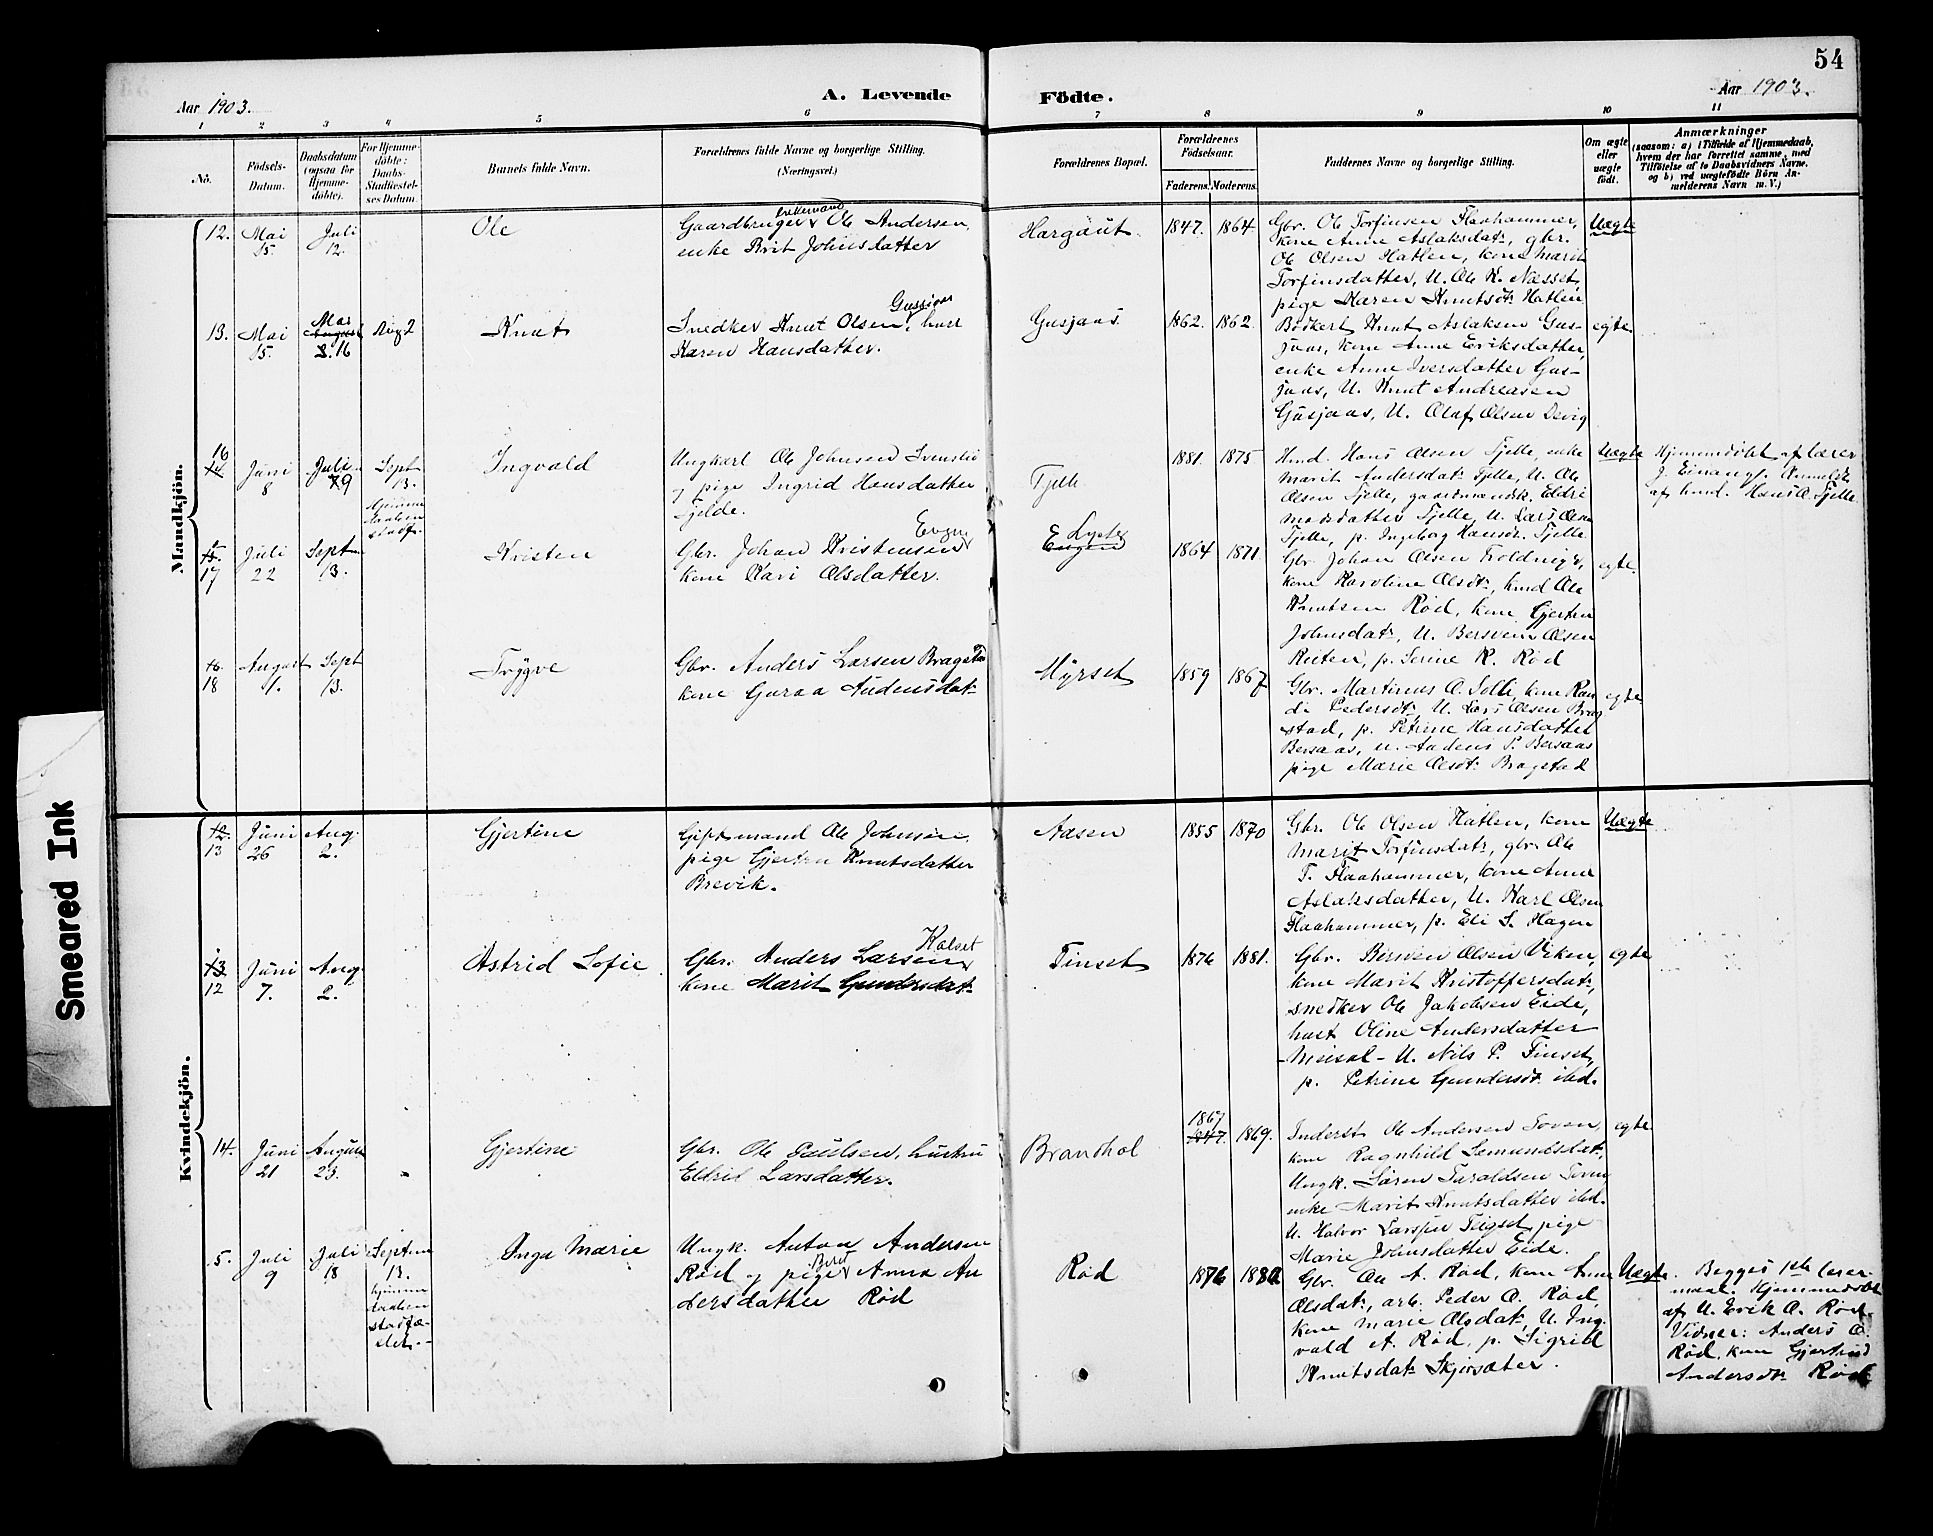 54
Aar 1903.
A. Levende
Födte.
Aar 1903.
1 2 3 4 5 6 7 8 9 10 11
No.
Födsels-
Datum.
Daabsdatum
(ogsaa for
Hjemme-
döbte).
For Hjemme-
döbte:
Daabs-
Stadfæstel-
ses Datum.
Barnets fulde Navn.
Forældrenes fulde Navne og borgerlige Stilling.
(Næringsvei.)
Forældrenes Bopæl.
Forældrenes
Födselsaar.
Faderens. Moderens.
Faddernes Navne og borgerlige Stilling.
Om ægte
eller
uægte
födt.
Anmærkninger
(saasom: a) i Tilfælde af Hjemmedaab,
hvem der har forrettet samme, med
Tilföielse af to Daabsvidners Navne.
og b) ved uægtefödte Börn An-
melderens Navn m. V.)
Mandkjön.
12.
Mai
15.
Juli
12.
Ole
enkemand
Gaardbruger Ole Andersen,
enke Brit Johnsdatter
Hargaut.
1847. 1864.
Gbr. Ole Torfinsen Flaahammer,
kone Anne Aslaksdat., gbr.
Ole Olsen Hatlen, kone Marit
Torfinsdatter, U. Ole K. Næsset,
pige Karen Knutsdt. Hatlen
Uægte
13.
Mai
15.
Mai
August
2. 16
Aug 2
Knut
Gussiaas
Snedker Knut Olsen, hust
Karen Hansdatter.
Gusjaas.
1862. 1862.
Bödkert Knut Aslaksen Gus-
jaas, kone Anne Eriksdatter,
enke Anne Iversdatter Gus-
jaas, U. Knut Andreasen
Gusjaas, U. Olaf Olsen Devig
egte
16
14
Juni
8
Juli
19
Sept
13.
Hjemme
daaben
stadf.
Ingvald
Ungkarl Ole Johnsen Svensbö
og pige Ingrid Hansdatter
Tjelde.
Tjelle
1881. 1875
Hmd. Hans Olsen Tjelle, enke
Marit Andersdat. Tjelle, U. Ole
Olsen Tjelle, gaardmandsk. Eldri
Madsdatter Tjelle, U. Lars Olsen
Tjelle, p. Ingeborg Hansdt. Tjelle
Uægte
Hjemmedöbt af lærer
J. Einang. Anmeldt
af hmd. Hans O. Tjelle
15.
17
Juli
22
Sept
13.
Kristen
Gbr. Johan Kristensen
kone Kari Olsdatter.
Eugen
1864 1871
Gbr Johan Olsen Toldnes,
kone Karoline Olsdt., hmd Ole
Knutsen Röd, kone Gjertru
Johnsdat., U. Bersvein Olsen
Reiten, p. Serine K. Röd
egte.
16.
18
August
1.
Sept
13.
Trygve
Gbr. Anders Larsen Bragstad
kone Guraa Audensdat.
Myrset
1859 1867
Gbr. Martinus O. Solli, kone Ran
di Pedersdt., U. Lars Olsen Brag
stad, p. Petrine Hansdatter
Bersaas, u. Audens P. Bersaas
pige Marie Olsdt. Bragstad
egte
Kvindekjön.
12.
13
Juni
26
Aug.
2.
Gjertine
Gift mand Ole Johnsen,
pige Gjertru Knutsdatter
Brevik.
Aasen
1855 1870
Gbr. Ole Olsen Hatlen, kone
Marit Torfinsdat., gbr. Ole
T. Flaahammer, kone Anne
Aslaksdatter, U. Karl Olsen
Flaahammer, p. Eli S. Hagen
Uægte
13
12
Juni
7.
Aug.
2.
Astrid Sofie
Kolset
Gbr. Anders Larsen
kone Marit Gundersdat.
Tinset
1876 1881.
Gbr. Bersven Olsen Viken,
kone Marit Kristoffersdat.,
snedker Ole Jakobsen Eide,
hust Oline Andersdatter
Meisal - U. Nils P. Tinset,
p. Petrine Gundersdt. ibd.
egte
14.
Juni
21
August
23.
Gjertine
Gbr. Ole Paulsen, hustru
Eldrid Larsdatter.
Brandhol
1867
1847. 1869.
Inderst Ole Andersen Toven,
kone Ragnhild Semundsdat.,
Ungk. Sören Taraldsen Toven
enke Marit Knutsdatter ibd.
U. Halvor Larssen Teigset, pige
Marie Johnsdatter Eide.
egte
5.
Juli
9
Juli
18
Septem
13.
hjemme
daaben
stadfæ-
stet.
Inga Marie
Ungk. Anton Andersen
Röd og pige Anna An
dersdatter Röd
Berit
Röd
1876 1880
Gbr. Ole A. Röd, kone Anne
Olsdat., arb. Peder O. Röd,
kone Marie Olsdat., U. Ing-
vald A. Röd, p. Sigrid
Knutsdat. Skjörsæter.
Uægte.
Begges 1ste leier-
maal. Hjemmedöbt
af U. Erik A. Röd.
Vidner: Anders O.
Röd, kone Gjertrud
Andersdt. Röd.
Smeared Ink